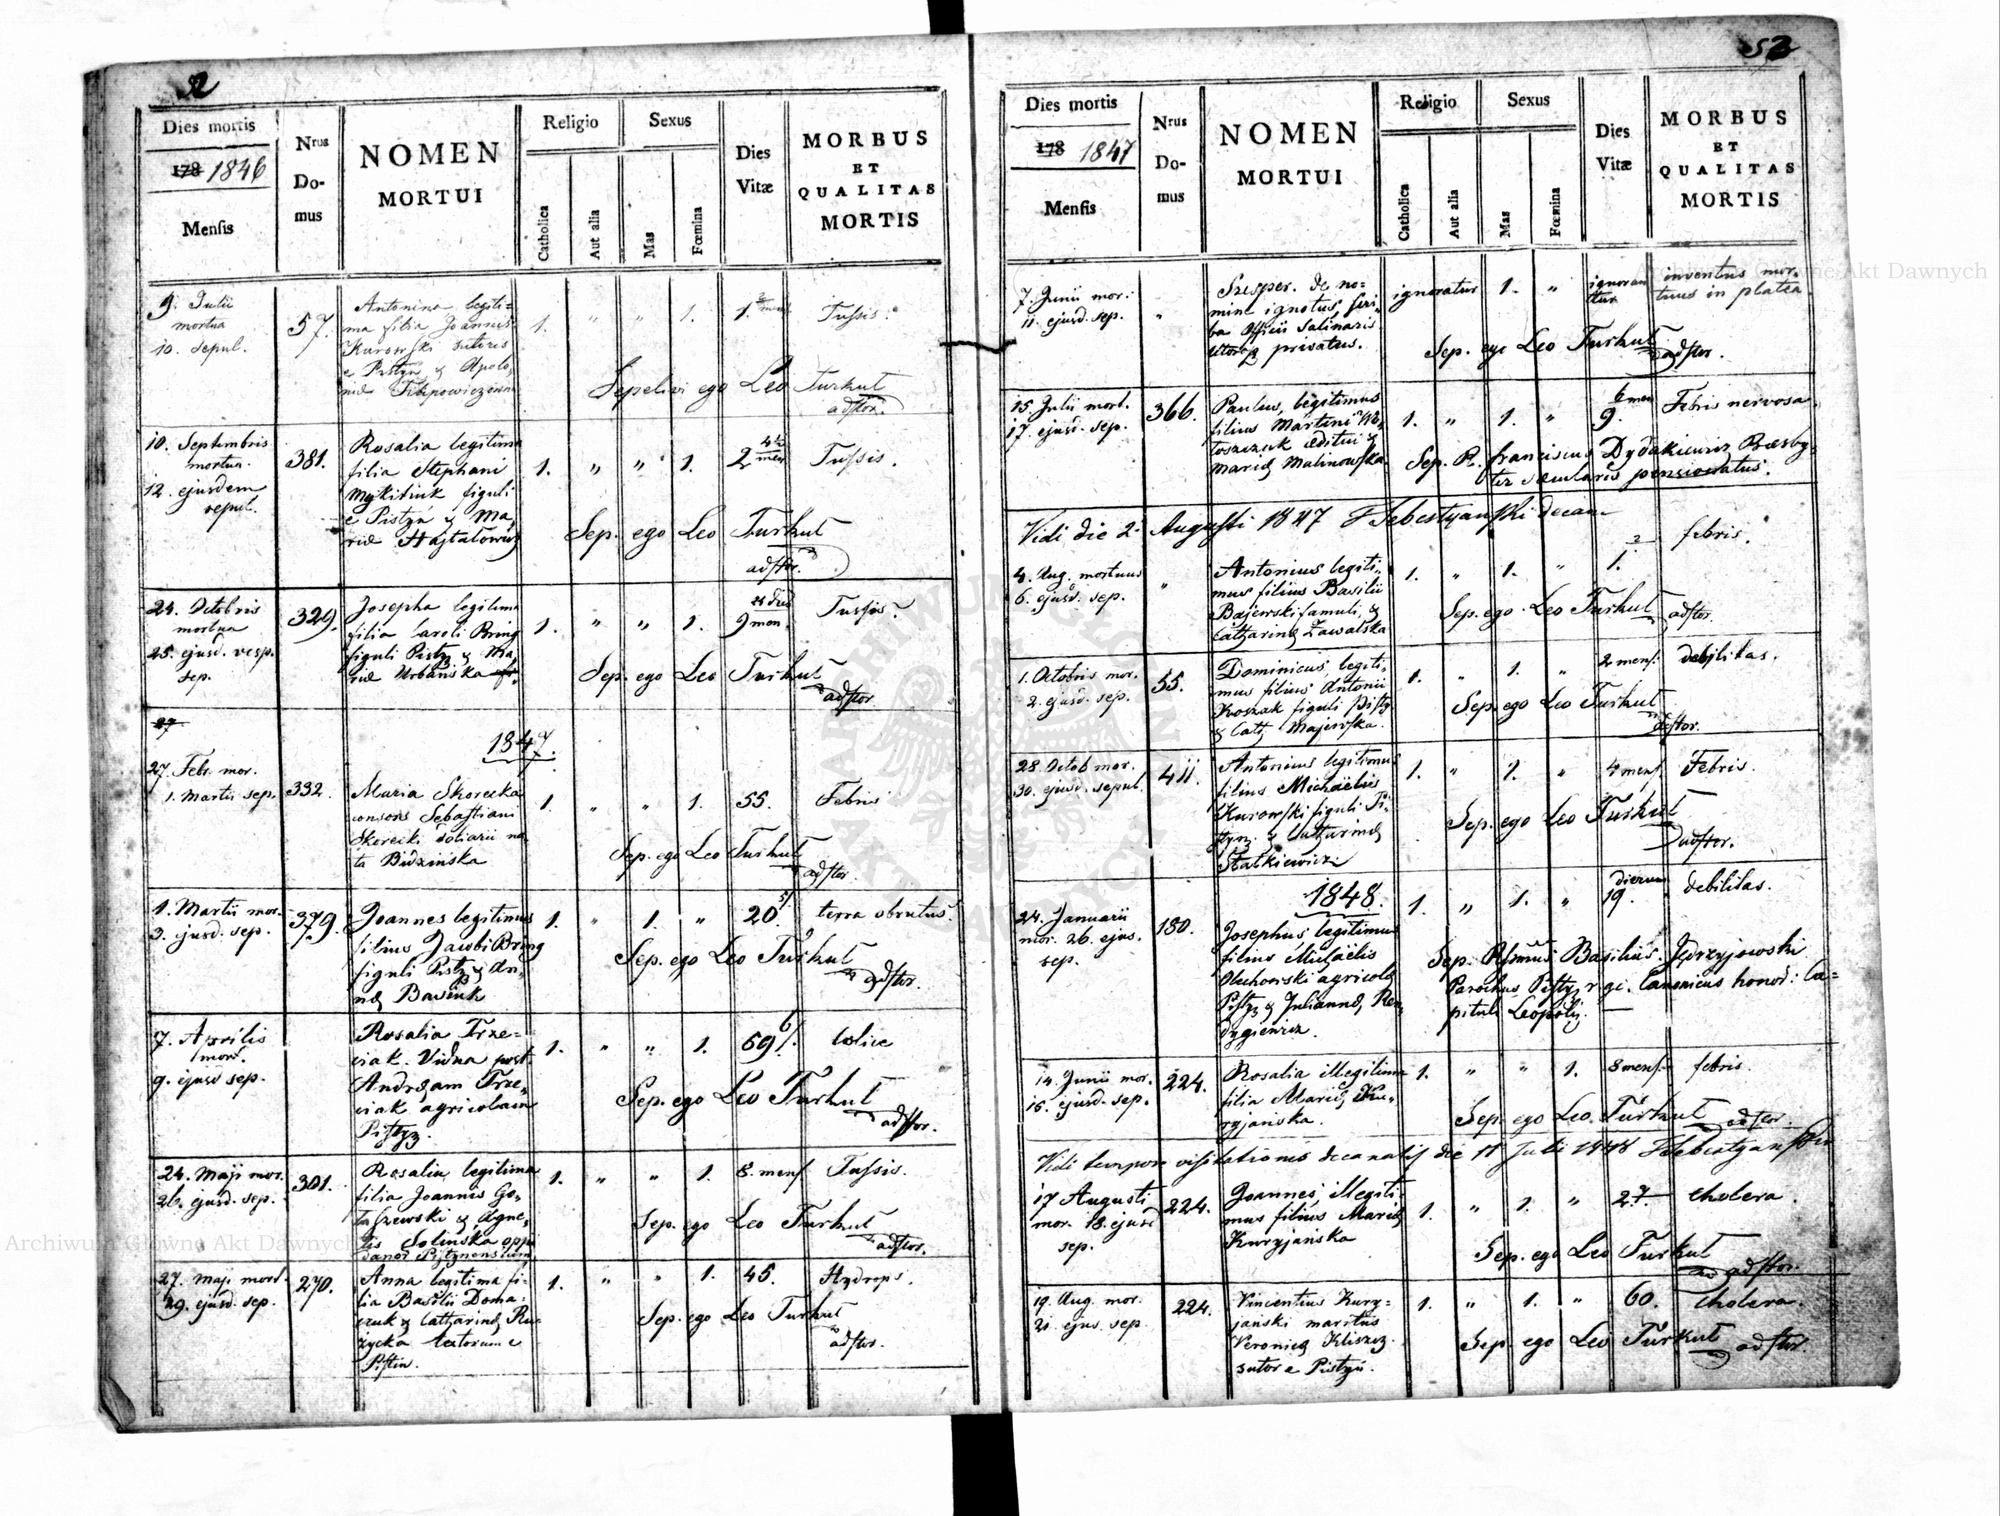 2
Dies mortis
178 1846
Mensis
Nrus
Do-
mus
NOMEN
MORTUI
Religio
Catholica
Aut alia
Sexus
Mas
Fœmina
Dies
Vitæ
MORBUS
ET
QUALITAS
MORTIS
9. Julii
mortua
10. sepul.
57.
Antonina legiti-
ma filia Joannis
Kurowski sutoris
e Pistyń & Apolo,
niæ Filipowiczówna
1. " " 1.
1. 2 men
Tussis.
Sepelivi ego Leo Turkuł
adstor.
10. Septembris
mortua.
12. ejusdem
sepul.
381.
Rosalia legitima
filia Stephani
Mykitiuk figuli
e Pistyń & Ma,
riæ
1. " " 1.
2 men
Tussis.
Sep. ego Leo Turkuł
adstor.
24. Octobris
mortua
25. ejusd. vesp.
sep.
329.
Josepha legitima
filia Caroli Bring
figuli Pistyń & Ma,
riæ Urbańska
1. " " 1.
9 men.
Tussis.
Sep. ego Leo Turkuł
adstor
27
1847.
27. Febr. mor.
1. Martii sep.
332.
Maria Skorecka
consors Sebastiani
Skorecki doliarii na
ta Budzinska
1. " " 1. 55. Febris
Sep. ego Leo Turkuł
adstor.
1. Martii mor.
3. ejusd. sep.
379.
Joannes legitimus
filius Jacobi Bring
figuli Pisty & An,
næ Bawiuk
1. " 1. " 20 terra obrutus.
Sep. ego Leo Turkuł
adstor.
7. Aprilis
mort.
9. ejusd sep.
Rosalia Trze-
ciak Vidua post
Andream Trze,
ciak agricolam
Pistyn.
1. " " 1. 69 colica
Sep. ego Leo Turkuł
adstor.
24. Maji mor.
26. ejusd. sep.
301.
Rosalia legitima
filia Joannis Go,
taszewski & Agne,
tis Solinska oppi
danor Pistynensium
1. " " 1. 8. mens Tussis.
Sep. ego Leo Turkuł
adstor.
27. Maji mort.
29. ejusd. sep.
270.
Anna legitima fi-
lia Basilii Doma-
czuk & Catharinæ Ru-
życka textorum e
Pistin.
1. " " 1. 45. Hydrops.
Sep. ego Leo Turkuł
adstor.
52
Dies mortis
178 1847
Mensis
Nrus
Do-
mus
NOMEN
MORTUI
Religio
Catholica
Aut alia
Sexus
Mas
Fœmina
Dies
Vitæ
MORBUS
ET
QUALITAS
MORTIS
7. Junii mor.
11. ejusd. sep.
"
Szesper. de no-
mine ignotus, scri-
ba Officii Salinaris
privatus.
ignoratur 1. "
ignoran
tur
inventus mor-
tuus in platea.
Sep. ego Leo Turkuł
adstor.
15. Julii mort.
17. ejusd. sep.
366.
Paulus, legitimus
filius Martini Wo,
toszczuk æditui &
Mariæ Malinowska
1. " 1. "
6 men
9.
Febris nervosa.
Sep. R. Franciscus Dydakiewicz Presby-
ter sæcularis pensionatus.
Vidi die 2. Augusti 1847 decan
4. Aug. mortuus
6. ejusd. sep.
"
Antonius legiti-
mus filius Basilii
Bajewski famuli, &
Catharinæ Zawalska
1. " 1. " 1. febris.
Sep. ego Leo Turkuł
adstor.
1. Octobris mor.
2. ejusd. sep.
55.
Dominicus, legiti-
mus filius Antonii
Koszak figuli Pisty
& Cath. Majewska.
1. " 1. " 2 mens. debilitas.
Sep. ego Leo Turkuł
adstor.
28. Octob mor.
30. ejusd. sepul.
411.
Antonius legitimus
filius Michaëlis
Kurowski figuli Pi-
styn. & Catharinæ
Statkiewicz
1. " 1. " 4 mens. Febris.
Sep. ego Leo Turkuł
adstor.
1848.
24. Januarii
mor. 26. ejus.
sep.
180.
Josephus legitimus
filius Michaëlis
Olechowski agricolæ
Pisty & Juliannæ,
1. " 1. "
dierum
19.
debilitas.
Sep. Rssimus Basilius Jędrzyjowski
Parochus Pistyn. r. gr. Canonicus honor: Ca-
pituli Leopoliy.
14. Junii mor.
16. ejusd. sep.
224.
Rosalia illegitima
filia Mariæ Ku-
ryjanska.
1. " " 1. 8 mens. febris.
Sep. ego Leo Turkuł adstor.
Vidi tempore visitationis decanalis die 11 Juli 1848
17 Augusti
mor. 18. ejusd
sep.
224.
Joannes, illegiti-
mus filius Mariæ
Kuryjanska
1. " 1. " 27 cholera.
Sep. ego Leo Turkuł
adstor.
19. Aug. mor.
21. ejus. sep.
224.
Vincentius Kury-
janski maritus
Veronicæ Kliszcz
sutor e Pistyń.
1. " 1. " 60. cholera.
Sep. ego Leo Turkuł adstor.
Archiwum Główne Akt Dawnych
Archiwum Główne Akt Dawnych
ARCHIWUM GŁÓWNE AKT DAWNYCH